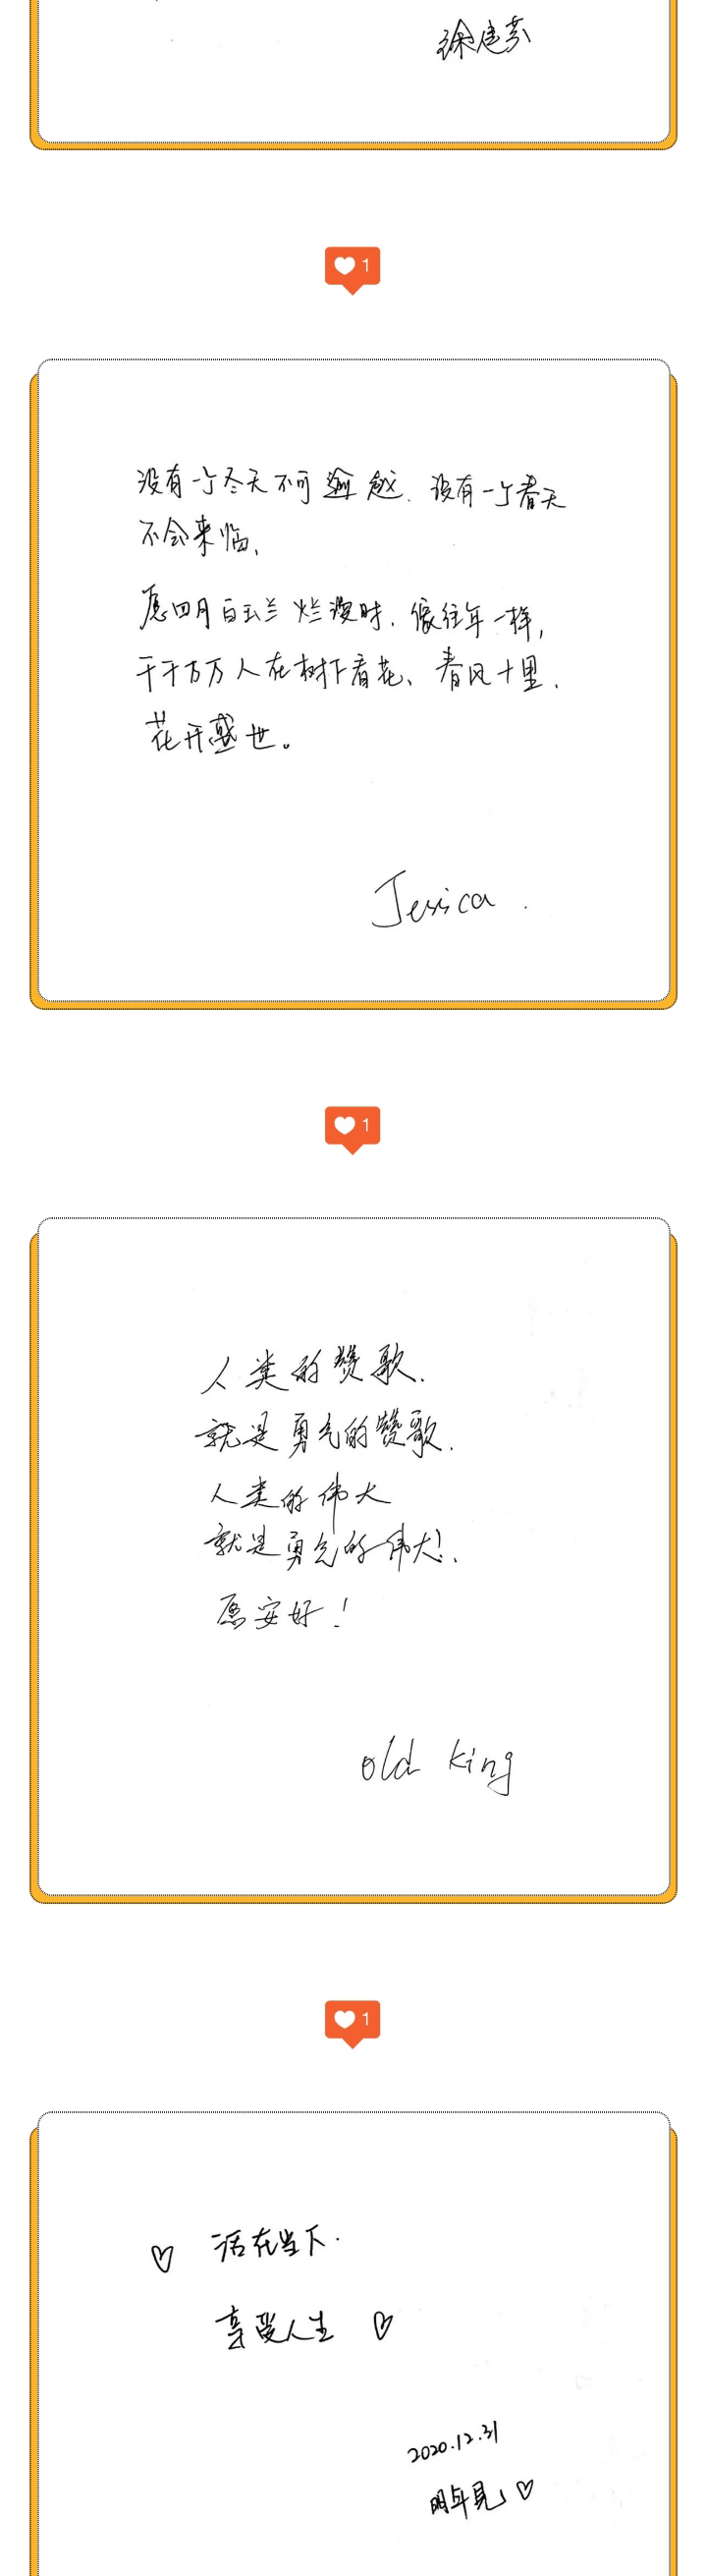 徐建芬
1
没有一个冬天不可逾越、没有一个春天
不会来临、
愿四月白玉兰烂漫时、像往年一样,
千千万万人在树下看花、春风十里、
花开盛世。
Jessica.
1
人类的赞歌、
就是勇气的赞歌、
人类的伟大
就是勇气的伟大!.
愿安好!
old king
1
♡ 活在当下.
享受人生 ♡
2020.12.31
明年见 ♡